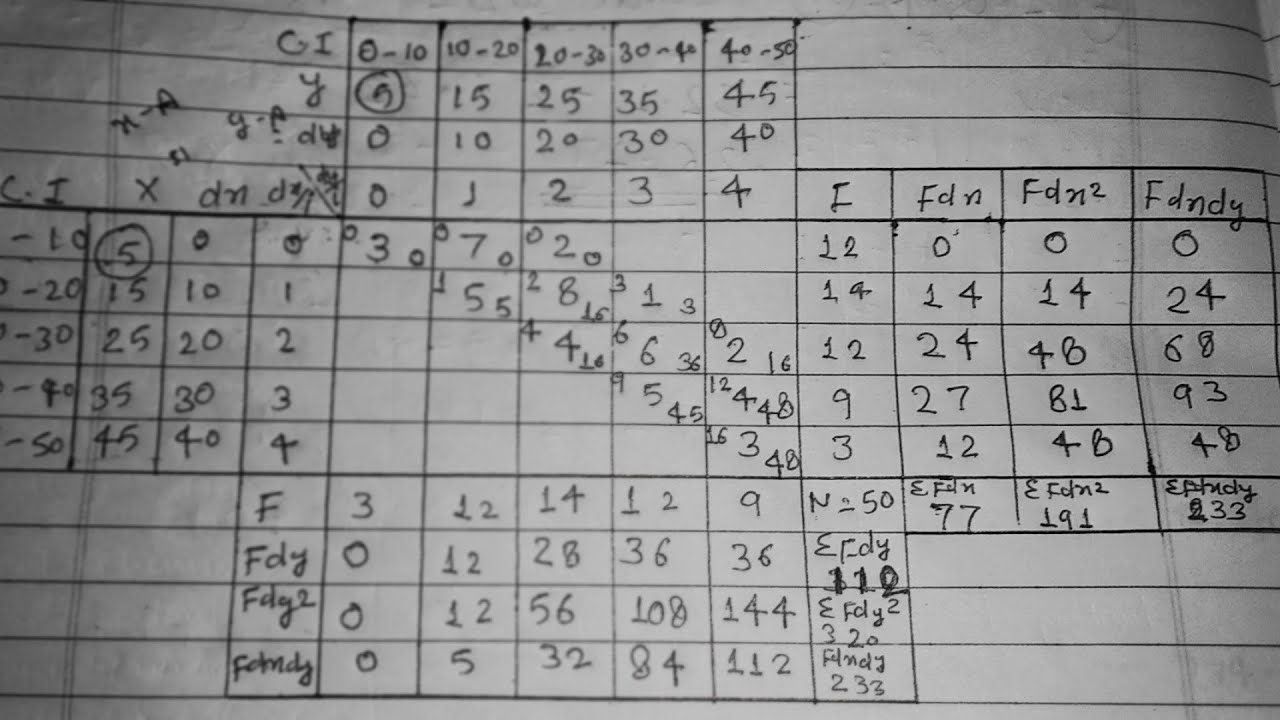 C.I 0-10 10-20 20-30 30-40 40-50
y 5 15 25 35 45
x-A y-A dy 0 10 20 30 40
C.I X dx dx 0 1 2 3 4 F Fdx Fdx² Fdxdy
-10 5 0 0 0 3 0 0 7 0 0 2 0 12 0 0 0
0-20 15 10 1 1 5 5 2 8 16 3 1 3 14 14 14 24
0-30 25 20 2 4 4 16 6 6 36 8 2 16 12 24 48 68
0-40 35 30 3 9 5 45 12 4 48 9 27 81 93
-50 45 40 4 16 3 48 3 12 48 48
F 3 12 14 12 9 N=50 ΣFdx 77 ΣFdx² 191 ΣFdxdy 233
Fdy 0 12 28 36 36 ΣFdy 112
Fdy² 0 12 56 108 144 ΣFdy² 320
Fdxdy 0 5 32 84 112 Fdxdy 233